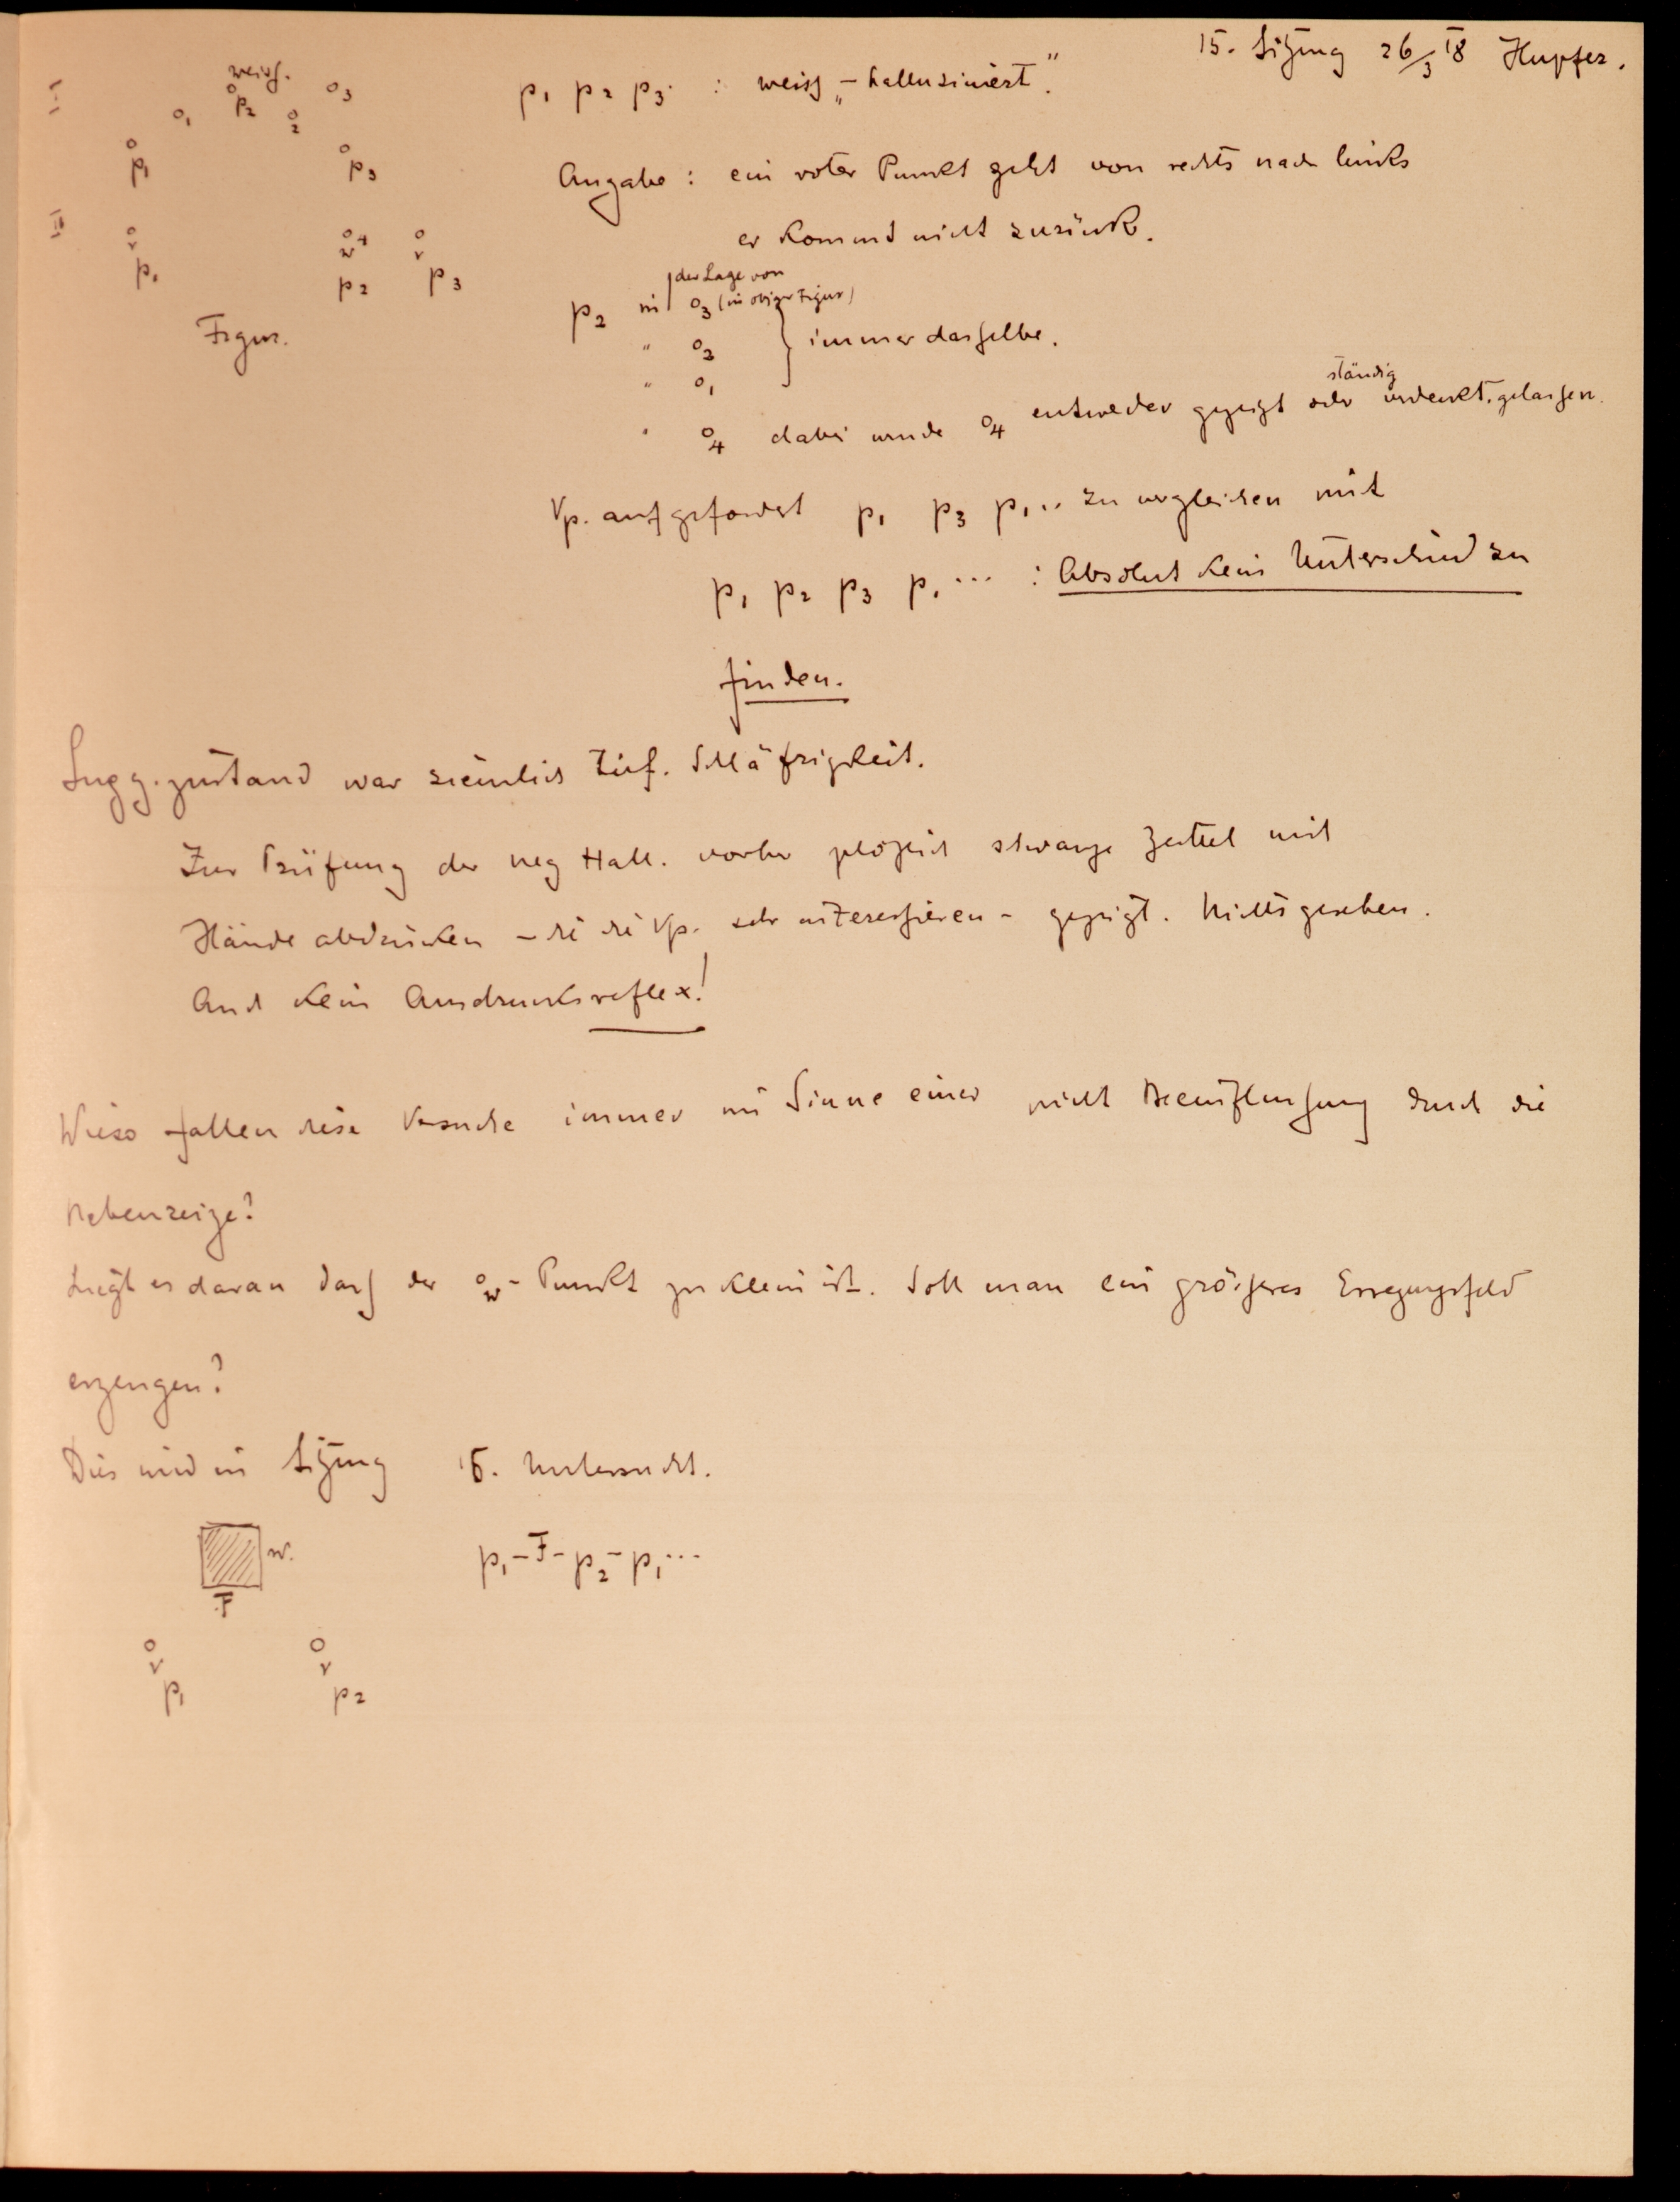 15. Sitzung 26/3 18 Hupfer.
I weiss. p1 p2 p3 : weiss „-halluziniert“.
o1 o p2 o2 o3
o p1 o p3
Angabe : ein roter Punkt geht von rechts nach links
er kommt nicht zurück.
II o r p1 o4 w p2 o r p3
Figur.
der Lage von
p2 in o3 (in obiger Figur)
" o2 } immer dasselbe.
" o1
ständig
" o4 dabei wurde o4 entweder gezeigt oder verdeckt gelassen.
Vp. aufgefordert p1 p3 p1 .. zu vergleichen mit
p1 p2 p3 p1 ... : Absolut kein Unterschied zu
finden.
Sugg.zustand war ziemlich tief. Schläfrigkeit.
Zur Prüfung der neg Hall. vorher plözlich schwarze Zettel mit
Händeabdrücken – die die Vp. sehr interessieren – gezeigt. Nichts gesehen.
Auch kein Ausdrucksreflex!
Wieso fallen diese Versuche immer im Sinne einer nicht Beeinflussung durch die
Nebenreize?
Liegt es daran dass der o w - Punkt zu klein ist. Soll man ein grösseres Erregungsfeld
erzeugen?
Dies wird in Sitzung 16. Untersucht.
w. p1 – F – p2 – p1 ...
F
o r p1 o r p2